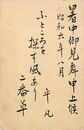 暑中御見舞申上候
昭和六年八月
平凡
ふところを
探す風あり
二番草